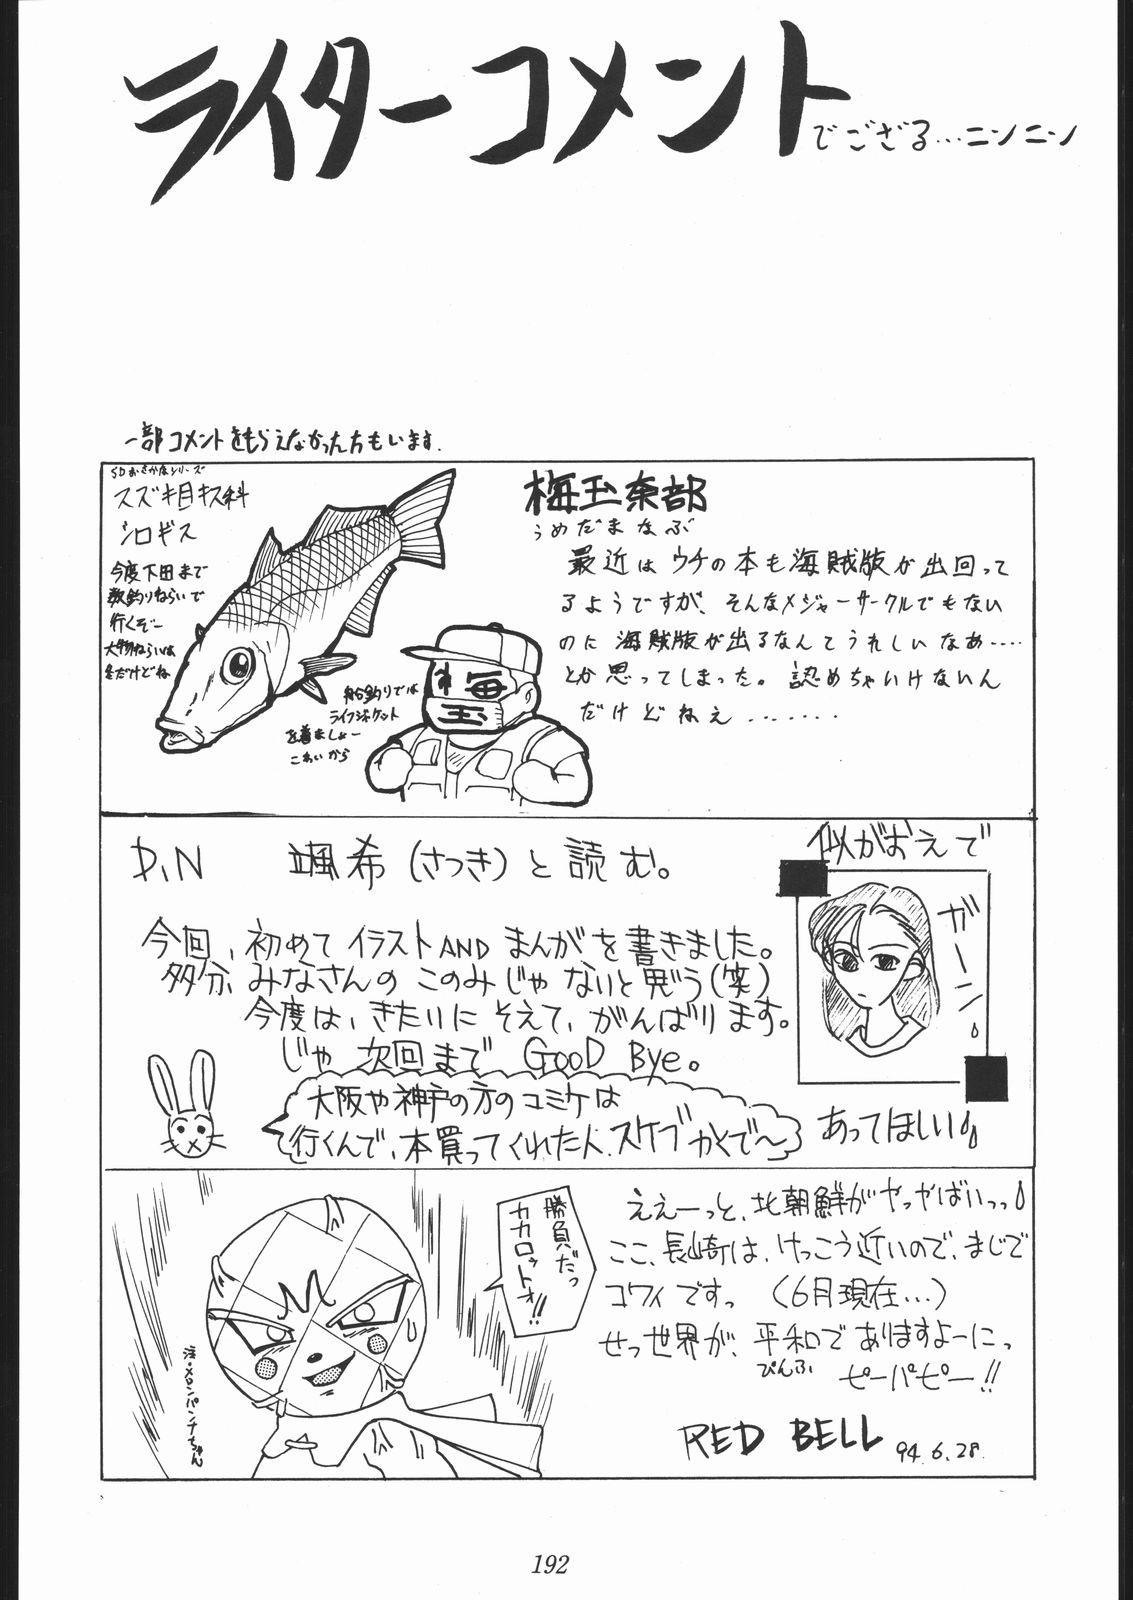 ライターコメント
でござる…ニンニン
一部コメントをもらえなかった方もいます.
SDおさかなシリーズ
スズキ目キス科
シロギス
今度下田まで
数釣りねらいで
行くぞー
大物ねらいは
冬だけどね
船釣りでは
ライフジャケット
を着ましょー
こわいから
梅玉
梅玉奈部
うめだまなぶ
最近はウチの本も海賊版が出回って
るようですが、そんなメジャーサークルでもない
のに海賊版が出るなんてうれしいなあ……
とか思ってしまった。認めちゃいけないん
だけどねえ.......
P.N 颯希(さつき)と読む。
今回、初めてイラストANDまんがを書きました。
多分、みなさんのこのみじゃないと思う(笑)
今度は、きたいにそえて、がんばります。
じゃ次回まで GooD Bye。
大阪や神戸の方のコミケは
行くんで、本買ってくれた人、スケブかくで〜
似がおえで
ガーン
あってほしい
勝負だっ
カカロットォ!!
注・メロンパンナちゃん
ええーっと、北朝鮮がやっやばいっっ
ここ、長崎は、けっこう近いので、まじで
コワイですっ (6月現在…)
せっ世界が、平和でありますよーにっ
ぴんふ
ピーパピー!!
RED BELL
94.6.28.
192